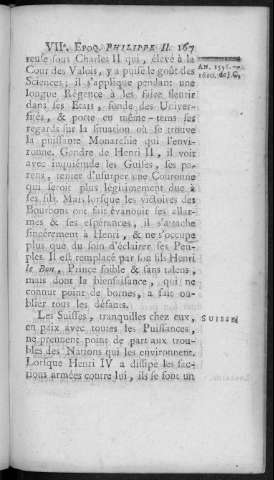 VIIe. EPOQ. PHILIPPE II. 167
reuse sous Charles II qui, élevé à la
AN. 1556.
Cour des Valois, y a puisé le goût des
1610. de J. C.
Sciences ; il s'applique pendant une
longue Régence à les faire fleurir
dans ses Etats, fonde des Univer-
sités, & porte en même-tems ses
regards sur la situation où se trouve
la puissante Monarchie qui l'envi-
ronne. Gendre de Henri II, il voit
avec inquiétude les Guises, ses pa-
rens, tenter d'usurper une Couronne
qui seroit plus légitimement due à
ses fils. Mais lorsque les victoires des
Bourbons ont fait évanouir ses allar-
mes & ses espérances, il s'attache
sincérement à Henri, & ne s'occupe
plus que du soin d'éclairer ses Peu-
ples. Il est remplacé par son fils Henri
le Bon, Prince foible & sans talens,
mais dont la bienfaisance, qui ne
connut point de bornes, a fait ou-
blier tous les défauts.
Les Suisses, tranquilles chez eux,
SUISSE.
en paix avec toutes les Puissances,
ne prennent point de part aux trou-
bles des Nations qui les environnent.
Lorsque Henri IV a dissipé les fac-
tions armées contre lui, ils se font un